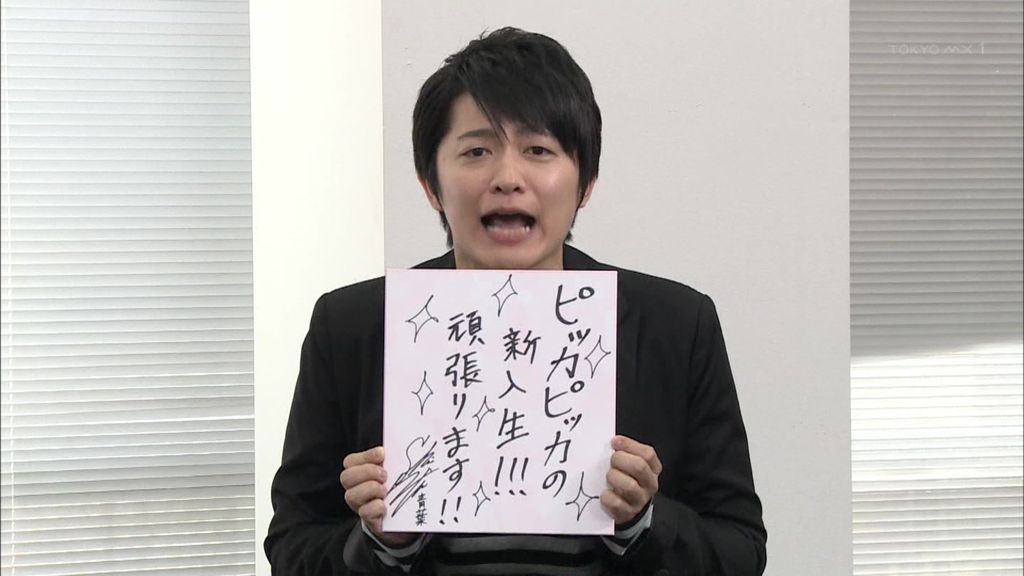 TOKYO MX1
ピッカピッカの
新入生!!!
頑張ります!!
青葉